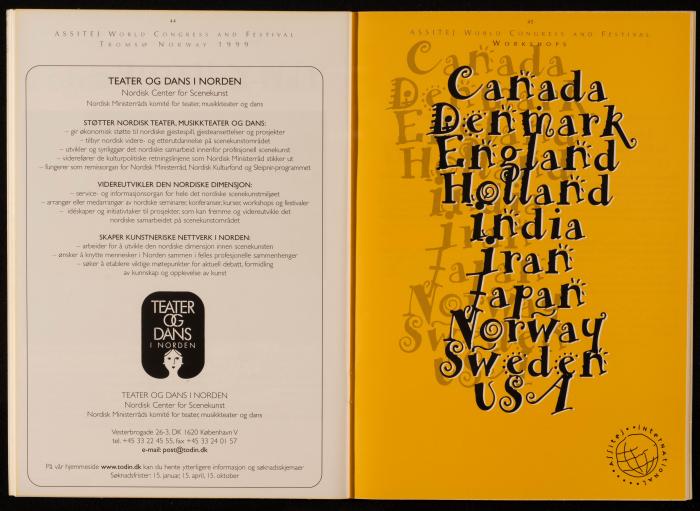 44
ASSITEJ World Congress and Festival
Tromsø Norway 1999
TEATER OG DANS I NORDEN
Nordisk Center for Scenekunst
Nordisk Ministerråds komité for teater, musikkteater og dans
STØTTER NORDISK TEATER, MUSIKKTEATER OG DANS:
– gir økonomisk støtte til nordiske gjestespill, gjesteansettelser og prosjekter
– tilbyr nordisk videre- og etterutdannelse på scenekunstområdet
– utvikler og synliggjør det nordiske samarbeid innenfor profesjonell scenekunst
– viderefører de kulturpolitiske retningslinjene som Nordisk Ministerråd stikker ut
– fungerer som remissorgan for Nordisk Ministerråd, Nordisk Kulturfond og Sleipnir-programmet
VIDEREUTVIKLER DEN NORDISKE DIMENSJON:
– service- og informasjonsorgan for hele det nordiske scenekunstmiljøet
– arrangør eller medarrangør av nordiske seminarer, konferanser, kurser, workshops og festivaler
– idéskaper og initiativtaker til prosjekter, som kan fremme og videreutvikle det
nordiske samarbeidet på scenekunstområdet
SKAPER KUNSTNERISKE NETTVERK I NORDEN:
– arbeider for å utvikle den nordiske dimensjon innen scenekunsten
– ønsker å knytte mennesker i Norden sammen i felles profesjonelle sammenhenger
– søker å etablere viktige møtepunkter for aktuell debatt, formidling
av kunnskap og opplevelse av kunst
TEATER
OG
DANS
I NORDEN
TEATER OG DANS I NORDEN
Nordisk Center for Scenekunst
Nordisk Ministerråds komité for teater, musikkteater og dans
Vesterbrogade 26-3, DK 1620 København V
tel. +45 33 22 45 55, fax +45 33 24 01 57
e-mail: post@todin.dk
På vår hjemmeside www.todin.dk kan du hente ytterligere informasjon og søknadsskjemaer
Søknadsfrister: 15. januar, 15. april, 15. oktober
45
ASSITEJ World Congress and Festival
Workshops
Canada
Denmark
England
Holland
India
Iran
Japan
Norway
Sweden
USA
Assitej International